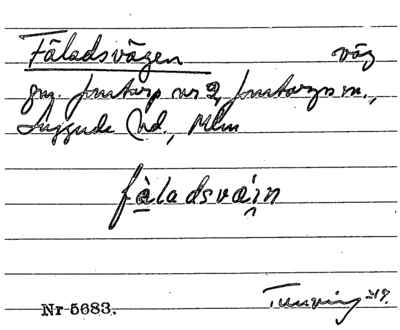 Fäladsvägen väg
gm. Jonstorp nr 2, Jonstorps sn.,
Luggude hd., Mlm
fàladsvai̯n
Nr 5683.